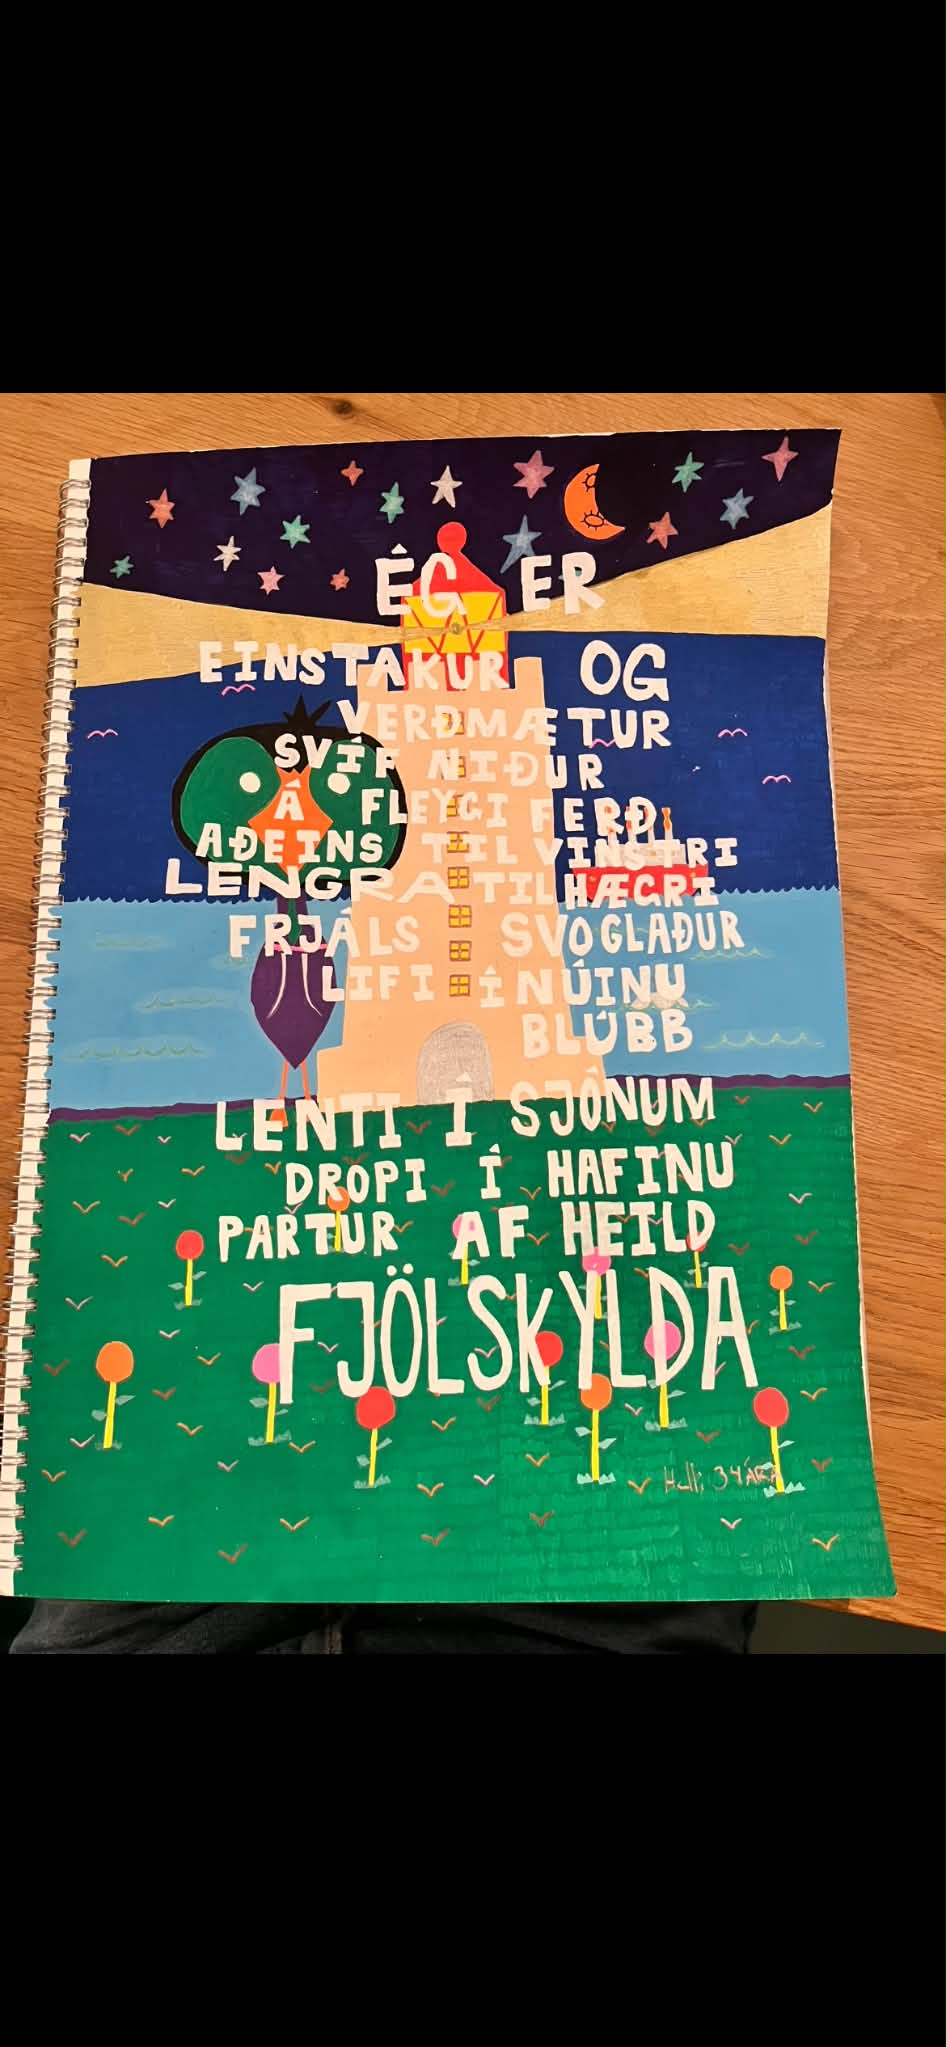 ÉG ER
EINSTAKUR OG
VERÐMÆTUR
SVÍF NIÐUR
Á FLEYGI FERÐ
AÐEINS TIL VINSTRI
LENGRA TIL HÆGRI
FRJÁLS SVOGLAÐUR
LIFI Í NÚINU
BLÚBB
LENTI Í SJÓNUM
DROPI Í HAFINU
PARTUR AF HEILD
FJÖLSKYLDA
34 ÁRA